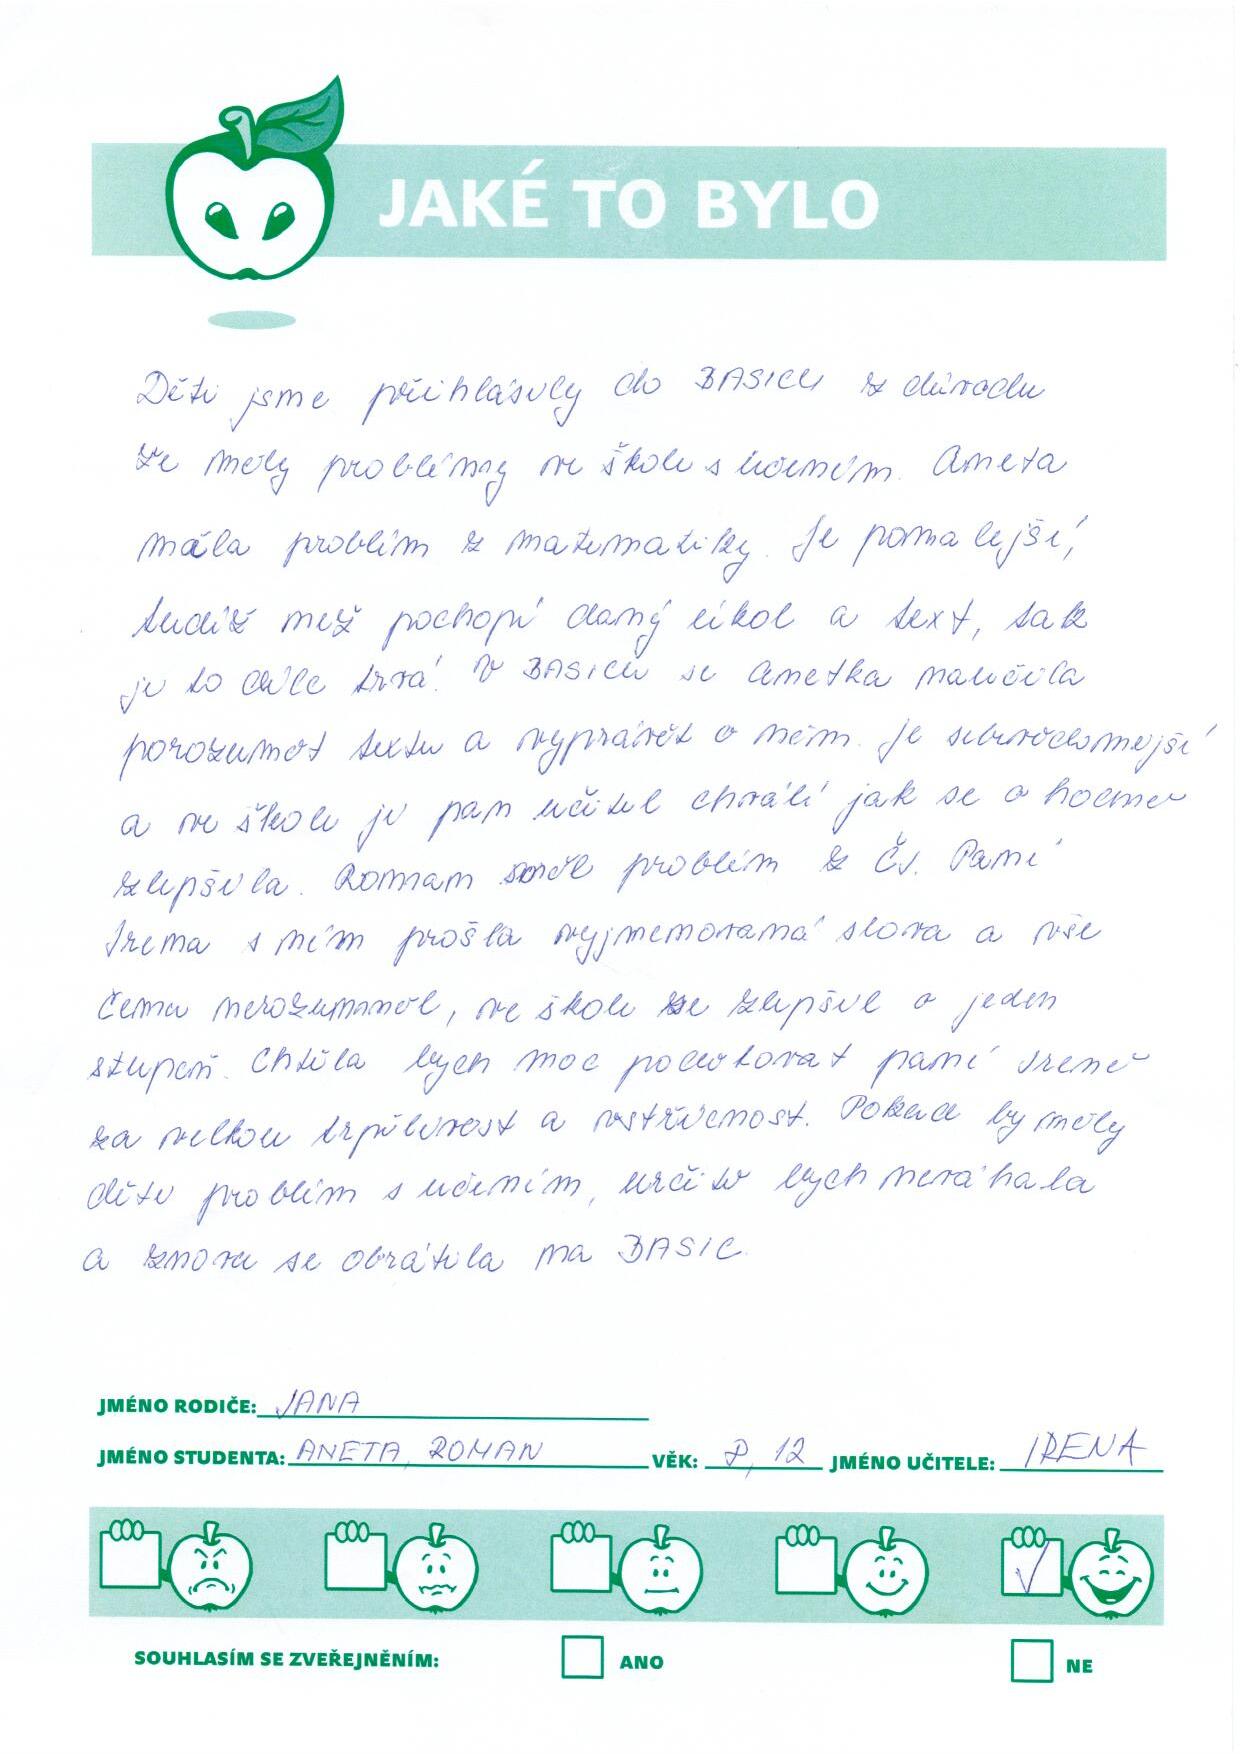 JAKÉ TO BYLO
Děti jsme přihlásily do BASICU z důvodu
že měly problémy ve škole s učením. Aneta
měla problém z matematiky. Je pomalejší,
tudíž než pochopí daný úkol a text, tak
je to déle trvá. V BASICU se Anetka naučila
porozumět textu a vyprávět o něm. Je sebevědomnejší
a ve škole jí pan učitel chválí jak se o hodně
zlepšila. Roman měl problém z ČJ. Paní
Irena s ním prošla vyjmenovaná slova a vše
čemu nerozumněl, ve škole se zlepšil o jeden
stupeň. Chtěla bych moc poděkovat paní Ireně
za velkou trpělivost a vstřícnost. Pokud by měly
děti problém s učením, určitě bych neváhala
a znovu se obrátila na BASIC.
JMÉNO RODIČE: JANA
JMÉNO STUDENTA: ANETA, ROMAN VĚK: 8, 12 JMÉNO UČITELE: IRENA
SOUHLASÍM SE ZVEŘEJNĚNÍM: ANO NE